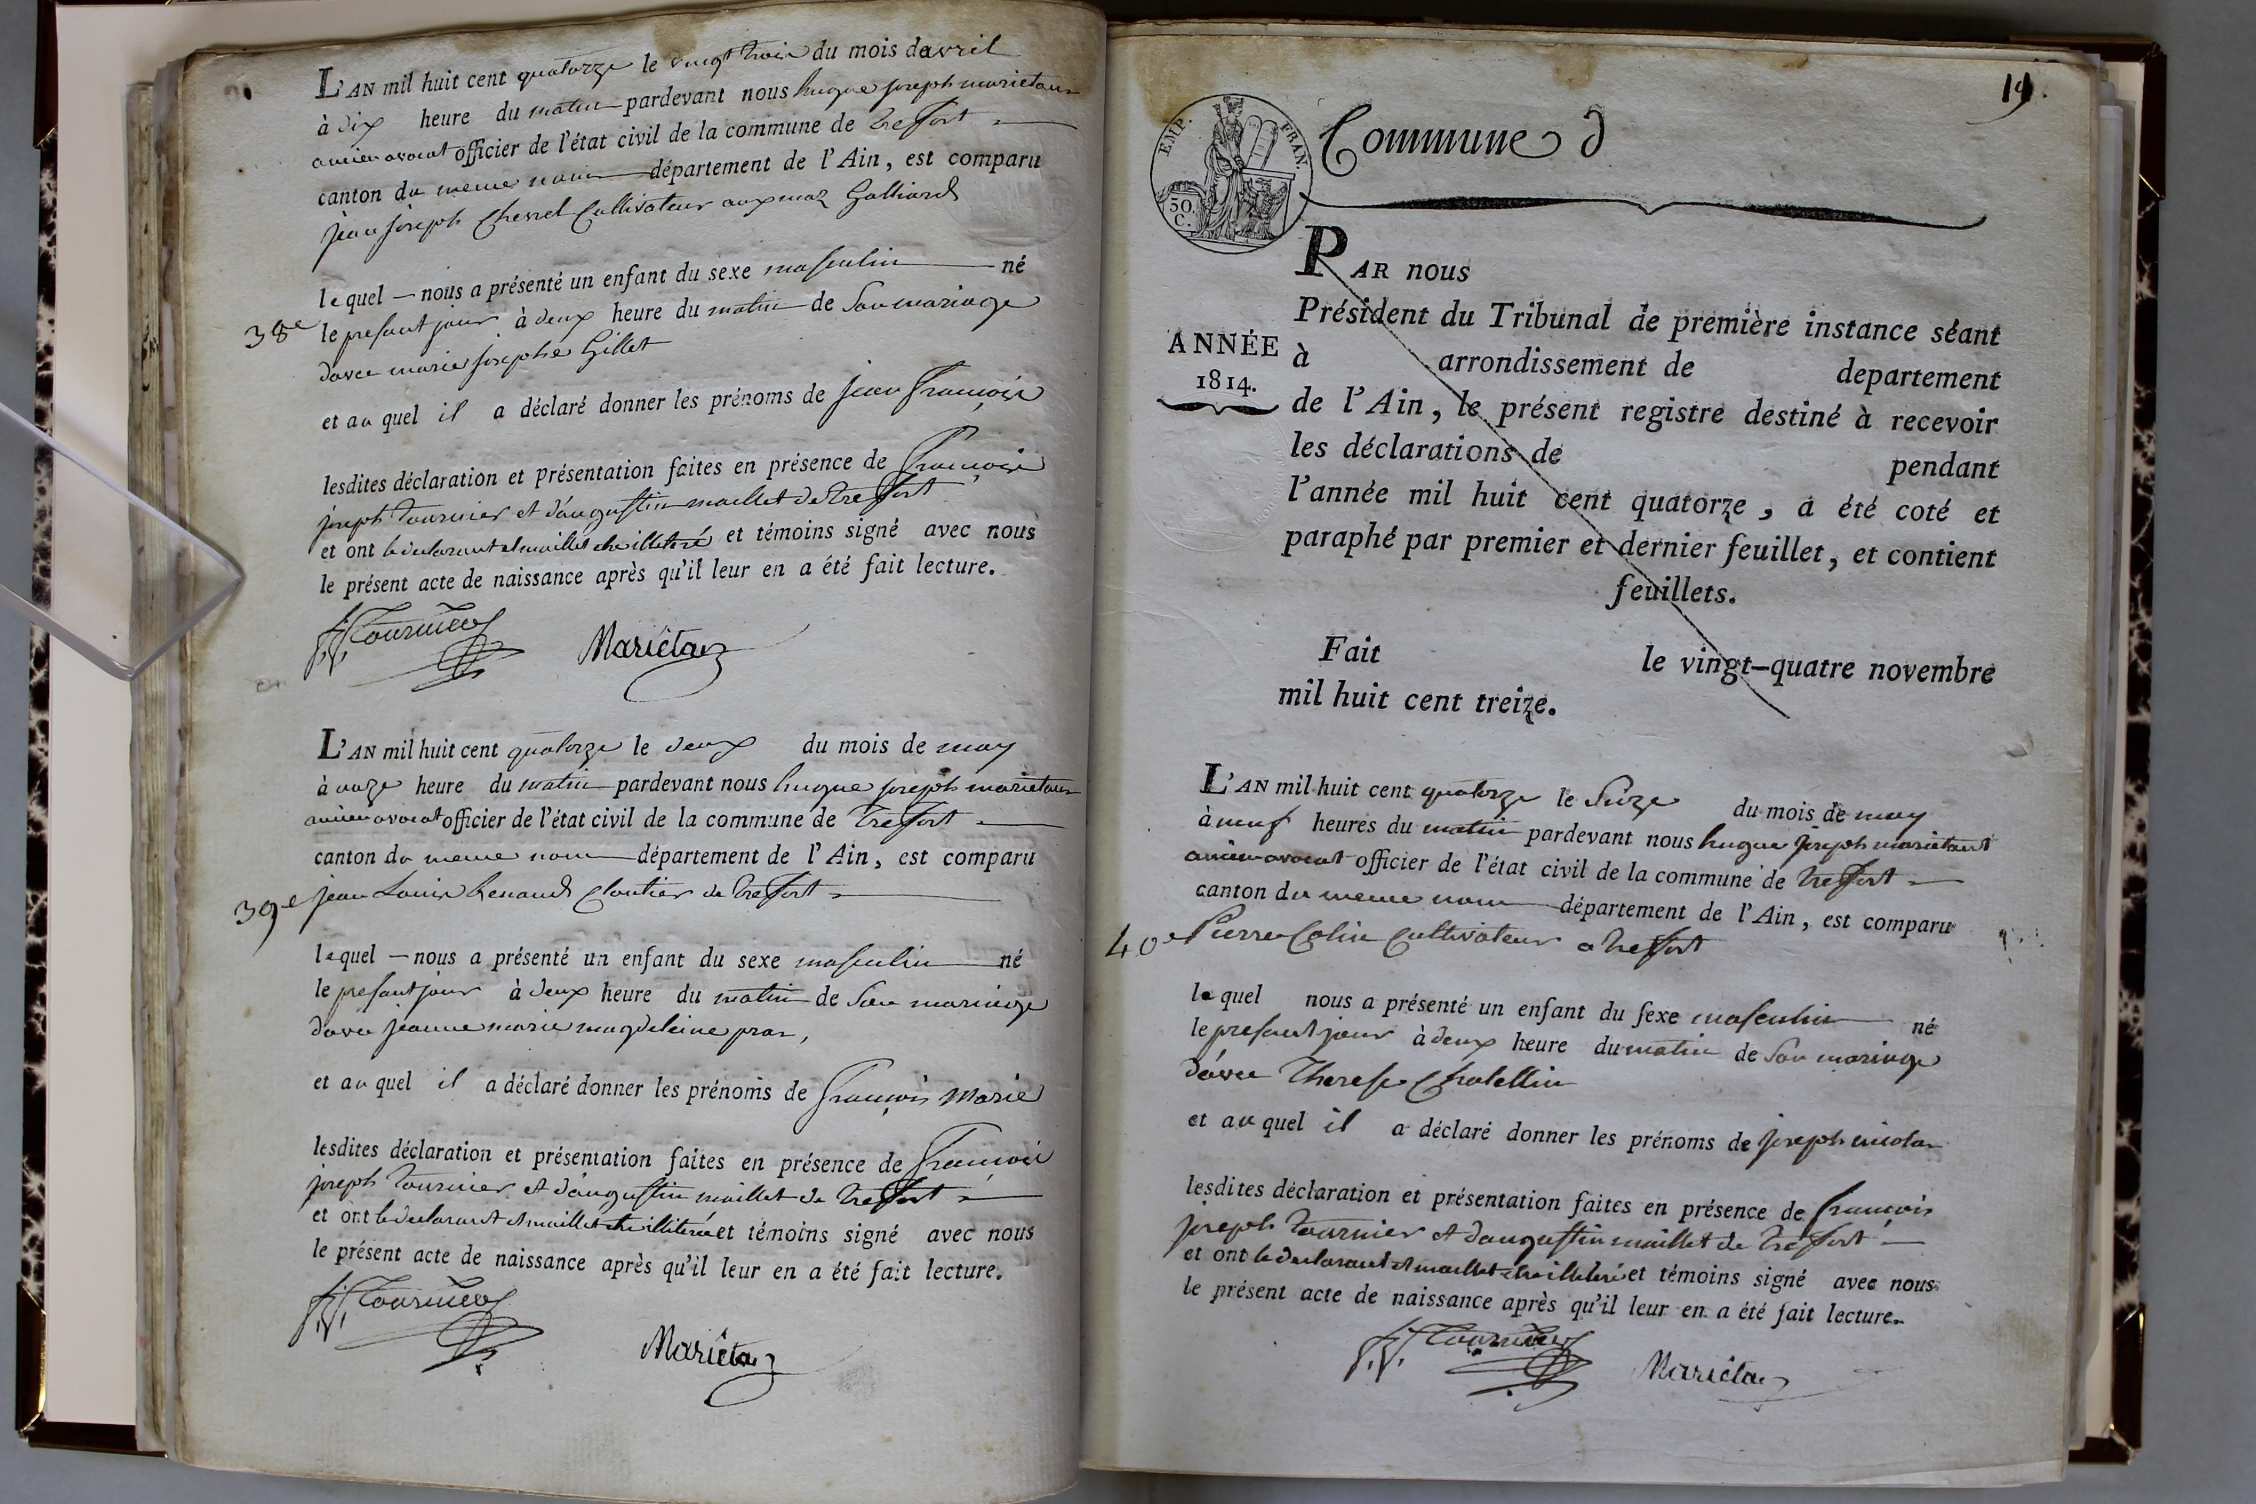 L'AN mil huit cent quatorze le vingt trois du mois davril
à dix heure du matin pardevant nous hugue joseph marietan
ancien avocat officier de l'état civil de la commune de treffort
canton du meme nom département de l'Ain, est comparu
jean joseph Chevrel Cultivateur aux maz Galliard
lequel — nous a présenté un enfant du sexe masculin né
38e
le presant jour à deux heure du matin de Son mariage
davec marie josephe Gillet
et au quel il a déclaré donner les prénoms de jean François
lesdites déclaration et présentation faites en présence de François
joseph tournier et d'augustin maillet de treffort
et ont le declarant et maillet illiteré et témoins signé avec nous
le présent acte de naissance après qu'il leur en a été fait lecture.
f. j. Tournier Mariétan
L'AN mil huit cent quatorze le deux du mois de may
à onze heure du matin pardevant nous hugue joseph marietan
ancien avocat officier de l'état civil de la commune de treffort
canton du meme nom département de l'Ain, est comparu
39e jean Louis Renaud Cloutier de treffort
lequel — nous a présenté un enfant du sexe masculin né
le presant jour à deux heure du matin de Son mariage
davec jeanne marie magdeleine pras,
et au quel il a déclaré donner les prénoms de François Marie
lesdites déclaration et présentation faites en présence de François
joseph tournier et d'augustin maillet de treffort
et ont le declarant et maillet illiteré et témoins signé avec nous
le présent acte de naissance après qu'il leur en a été fait lecture.
f. j. Tournier Mariétan
19.
EMP. FRAN.
50.
C.
Commune d
PAR nous
Président du Tribunal de première instance séant
ANNÉE
1814.
à arrondissement de departement
de l'Ain, le présent registre destiné à recevoir
les déclarations de pendant
l'année mil huit cent quatorze, a été coté et
paraphé par premier et dernier feuillet, et contient
feuillets.
Fait le vingt-quatre novembre
mil huit cent treize.
L'AN mil huit cent quatorze le Suze du mois de may
à neuf heures du matin pardevant nous hugue joseph marietant
ancien avocat officier de l'état civil de la commune de treffort
canton du meme nom département de l'Ain, est comparu
40e Pierre Colin Cultivateur a treffort
lequel nous a présenté un enfant du sexe masculin né
le presant jour à deux heure du matin de Son mariage
d'avec Therese Chatellin
et au quel il a déclaré donner les prénoms de joseph nicolas
lesdites déclaration et présentation faites en présence de françois
joseph tournier et d'augustin maillet de treffort
et ont le declarant et maillet illiteré et témoins signé avec nous
le présent acte de naissance après qu'il leur en a été fait lecture.
f. j. Tournier Mariétan